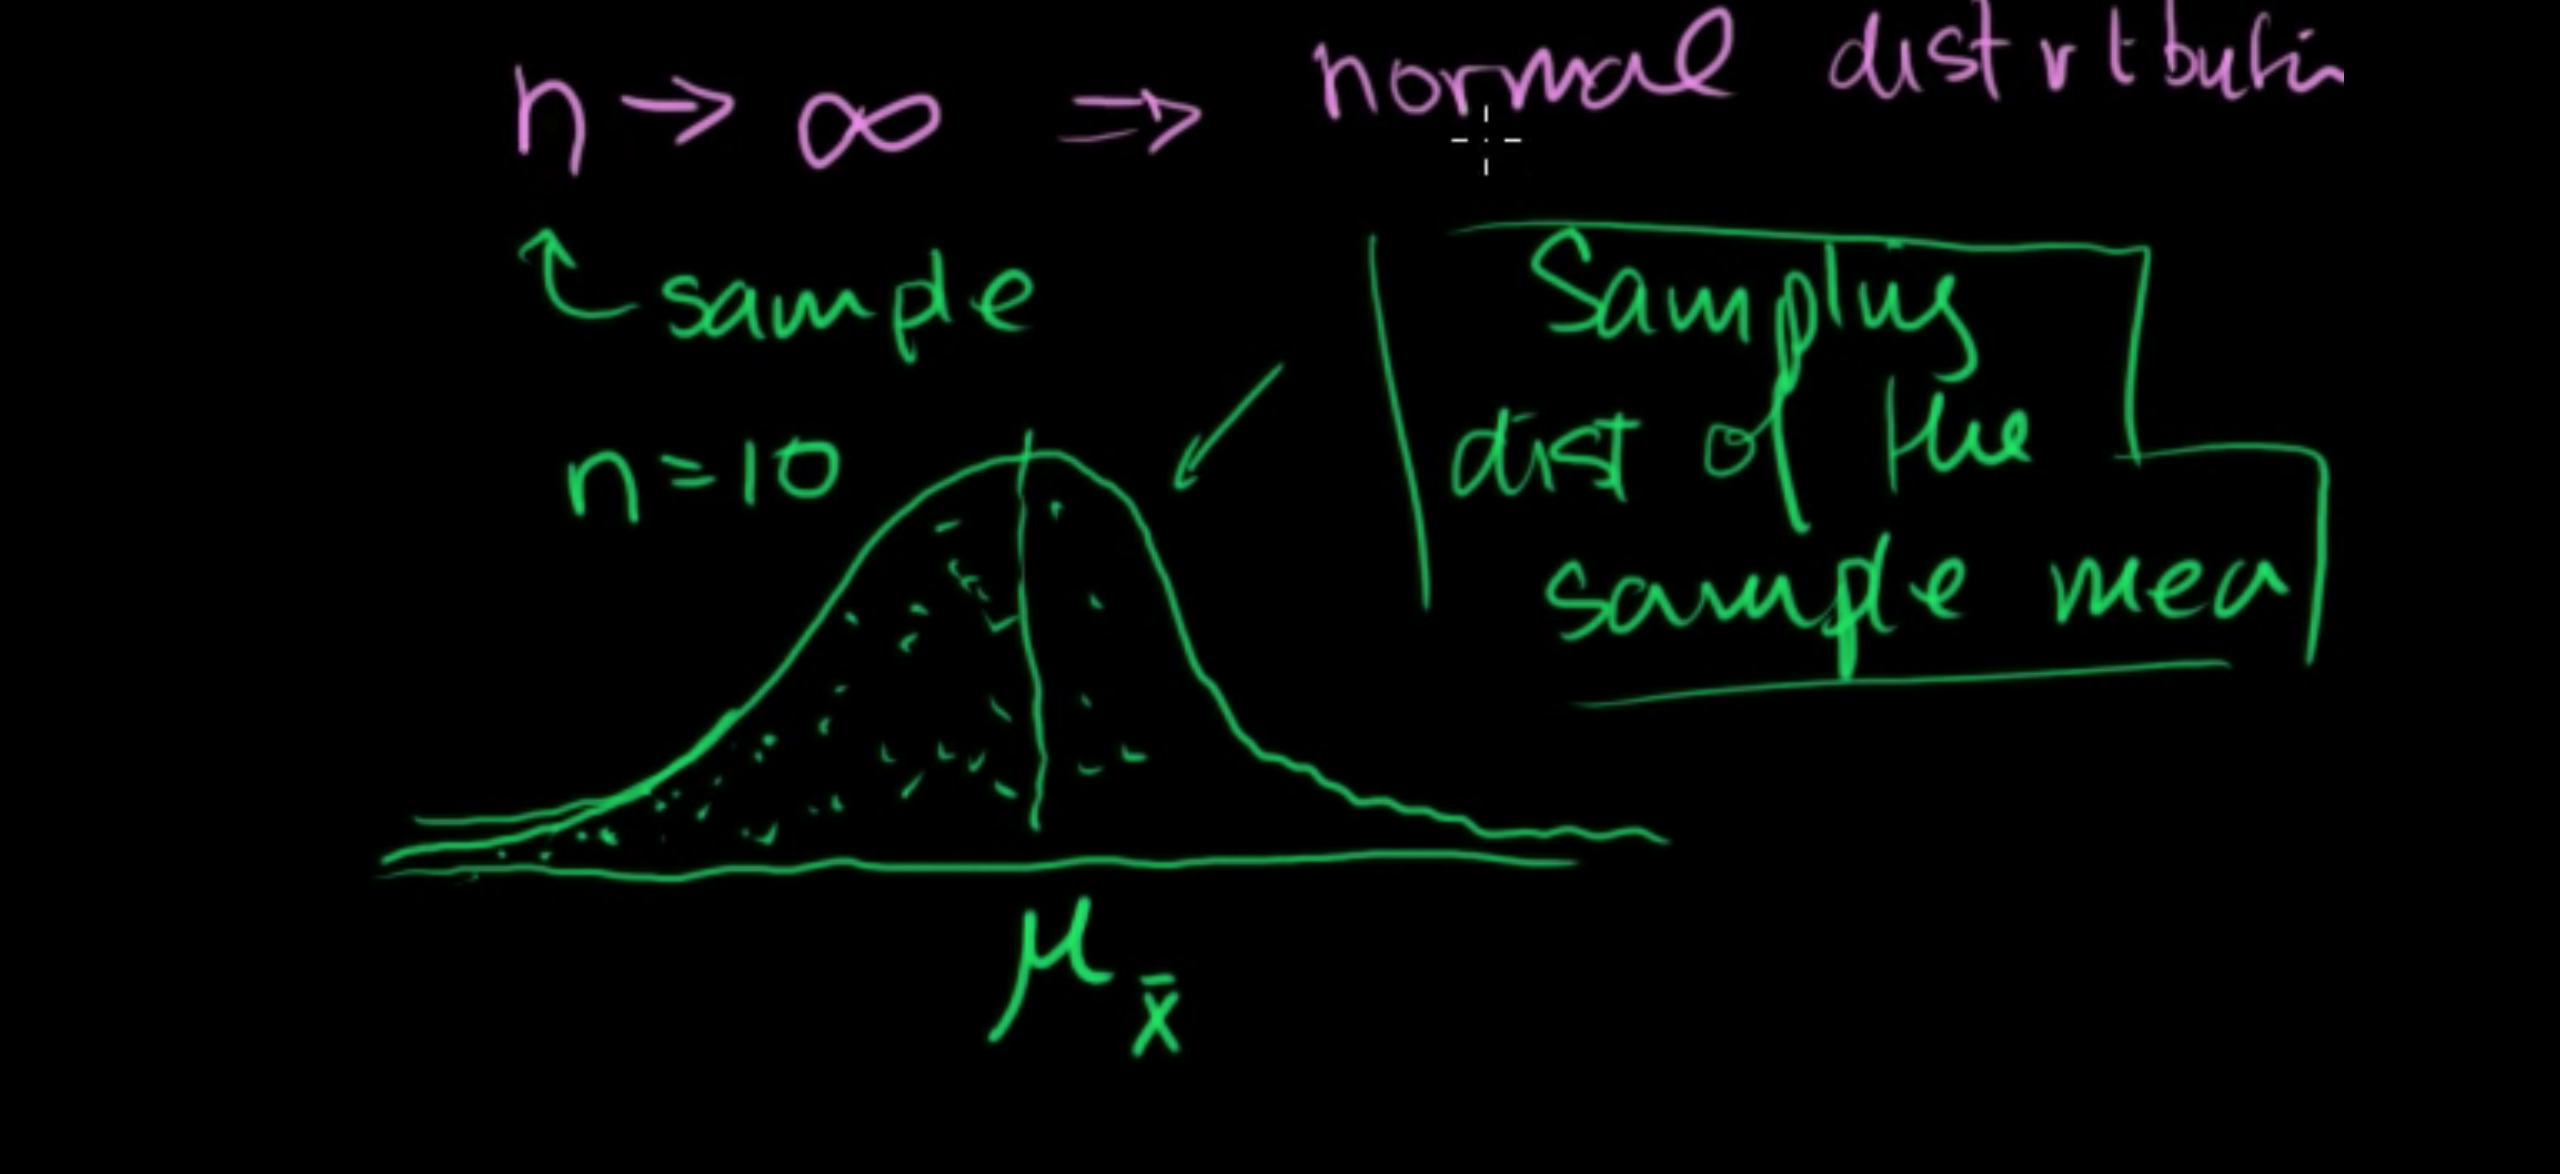 n → ∞ ⇒ normal distribution
sample
Sampling
n=10
dist of the
sample mea
μx̄